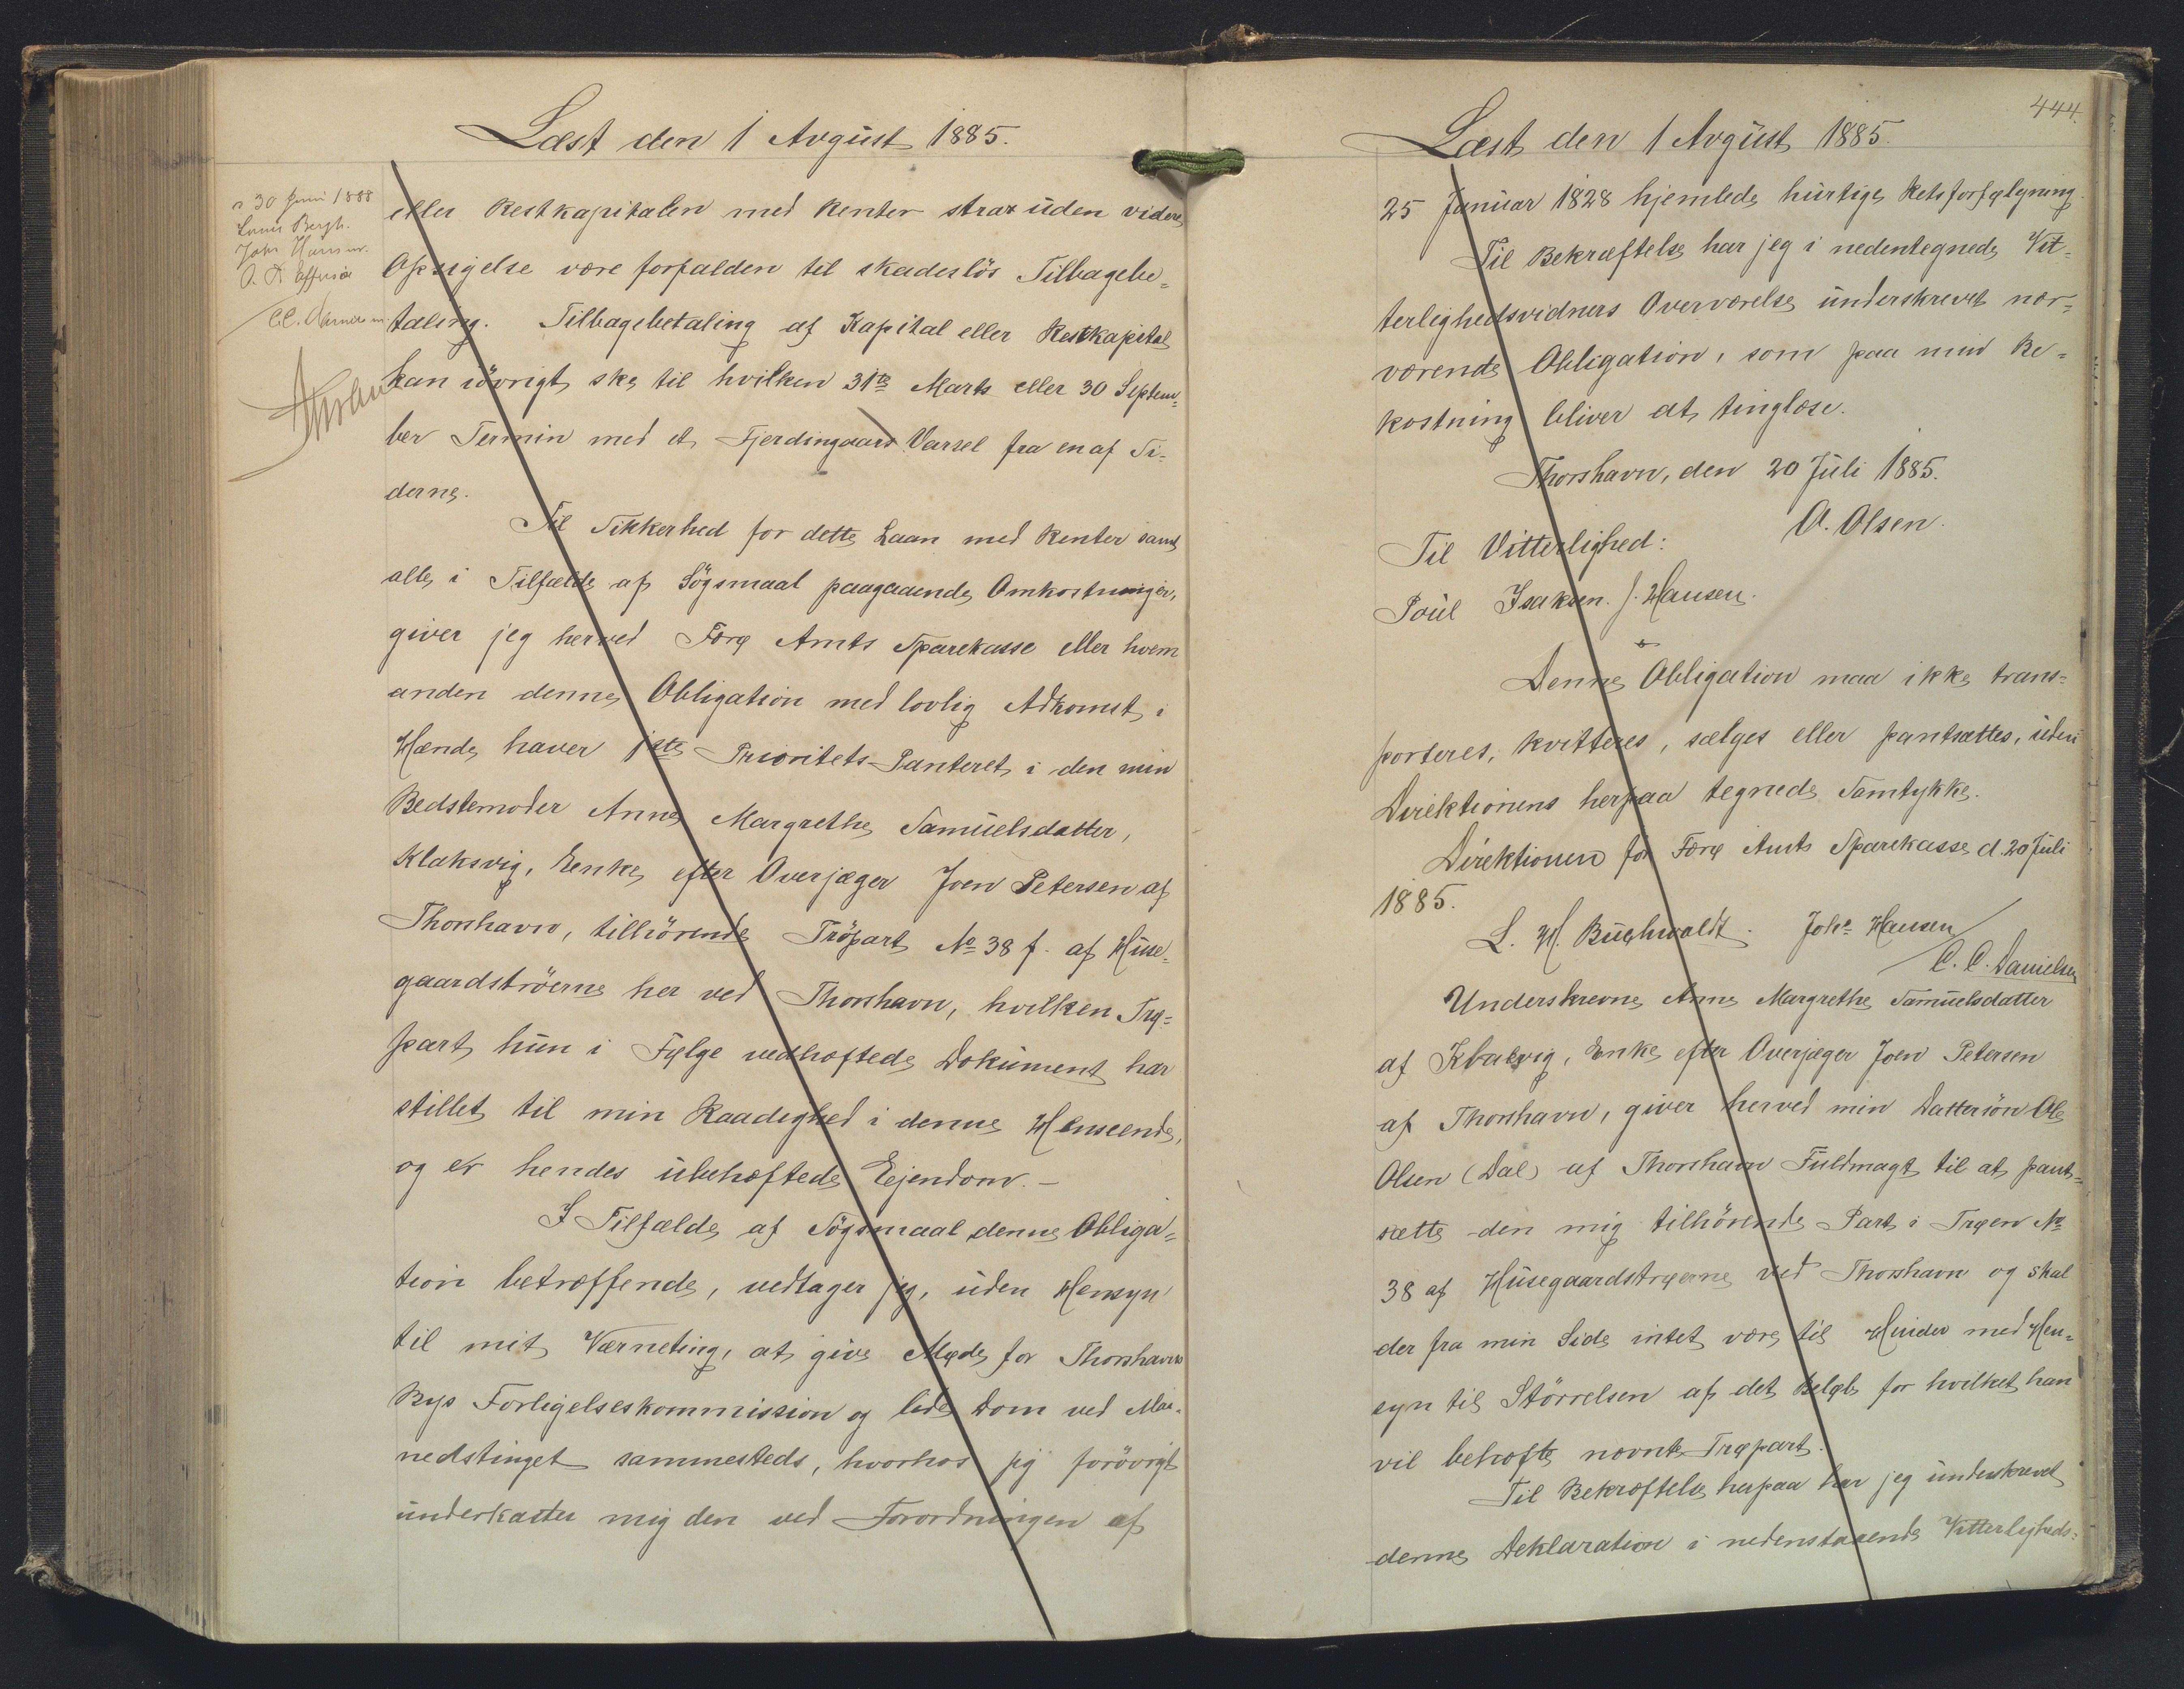 Læst den 1 August 1885.
30 Juni 1888
Johs Hansen.
C.C. Danielsen
eller Restkapitalen med Renter strax uden videre
Opsigelse være forfalden til skadeslös Tilbagebe=
taling. Tilbagebetaling af Kapital eller Restkapital
kan iövrigt ske til hvilken 31te Marts eller 30 Septem=
ber Termin med et Fjerdingaars Varsel fra en af Si=
derne.
Til Sikkerhed for dette Laan med Renter samt
alle i Tilfælde af Sögsmaal paagaaende Omkostninger,
giver jeg herved Færø Amts Sparekasse eller hvem
anden denne Obligation med lovlig Adkomst i
Hænde haver 1ste Prioritets-Panteret i den min
Bedstemoder Anne Margrethe Samuelsdatter,
Klaksvig, Enke efter Overjæger Joen Petersen af
Thorshavn, tilhörende Tröpart No 38 f. af Huse=
gaardströerne her ved Thorshavn, hvilken Trø=
part hun i Følge vedhæftede Dokument har
stillet til min Raadighed i denne Henseende,
og er hendes ubehæftede Ejendom. –
I Tilfælde af Sögsmaal denne Obliga=
tion betræffende, vedtager jeg, uden Hensyn
til mit Værneting, at give Møde for Thorshavns
Bys Forligelseskommission og lide Dom ved Maa=
nedstinget sammesteds, hvorhos jeg forövrigt
underkaster mig den ved Forordningen af
444.
Læst den 1 August 1885.
25 Januar 1828 hjemlede hurtige Retsforfølgning.
Til Bekræftelse har jeg i nedentegnede Vit=
terlighedsvidners Overværelse underskrevet nær=
værende Obligation, som paa min Be=
kostning bliver at tinglæse.
Thorshavn, den 20 Juli 1885.
O. Olsen.
Til Vitterlighed:
Poul Isaksen. J. Hansen.
Denne Obligation maa ikke trans=
porteres, kvitteres, sælges eller pantsættes, uden
Direktionens herpaa tegnede Samtykke.
Direktionen for Færø Amts Sparekasse d. 20 Juli
1885.
L. H. Buchwaldt. Johs Hansen
C. C. Danielsen
Underskrevne Anne Margrethe Samuelsdatter
af Klaksvig, Enke efter Overjæger Joen Petersen
af Thorshavn, giver herved min Dattersön Ole
Olsen (Dal) af Thorshavn Fuldmagt til at pant=
sætte den mig tilhörende Part i Trøen No
38 af Husegaardstrøerne ved Thorshavn og skal
der fra min Side intet være til Hinder med Hen=
syn til Störrelsen af det Beløb for hvilket han
vil behæfte nævnte Trøpart.
Til Bekræftelse herpaa har jeg underskrevet
denne Deklaration i nedenstaaende Vitterligheds=